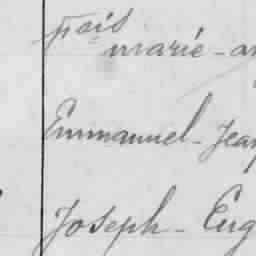 çois
marié-
Emmanuel-Jean
Joseph-Eug